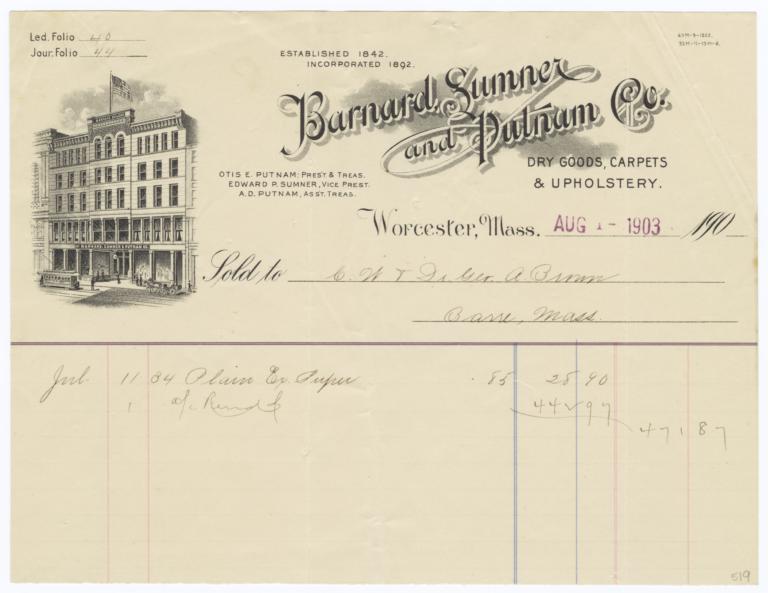 Led. Folio 40
Jour. Folio 44
ESTABLISHED 1842.
INCORPORATED 1892.
Barnard, Sumner
and Putnam Co.
DRY GOODS, CARPETS
& UPHOLSTERY.
OTIS E. PUTNAM; PRES'T & TREAS.
EDWARD P. SUMNER, VICE PREST.
A.D. PUTNAM, ASST. TREAS.
BARNARD, SUMNER & PUTNAM CO.
Worcester, Mass. AUG 1- 1903 190
Sold to Geo. A Brown
Barre, Mass.
11 34 Plain Ex. Super .85 28 90
1 44 97
471 87
519